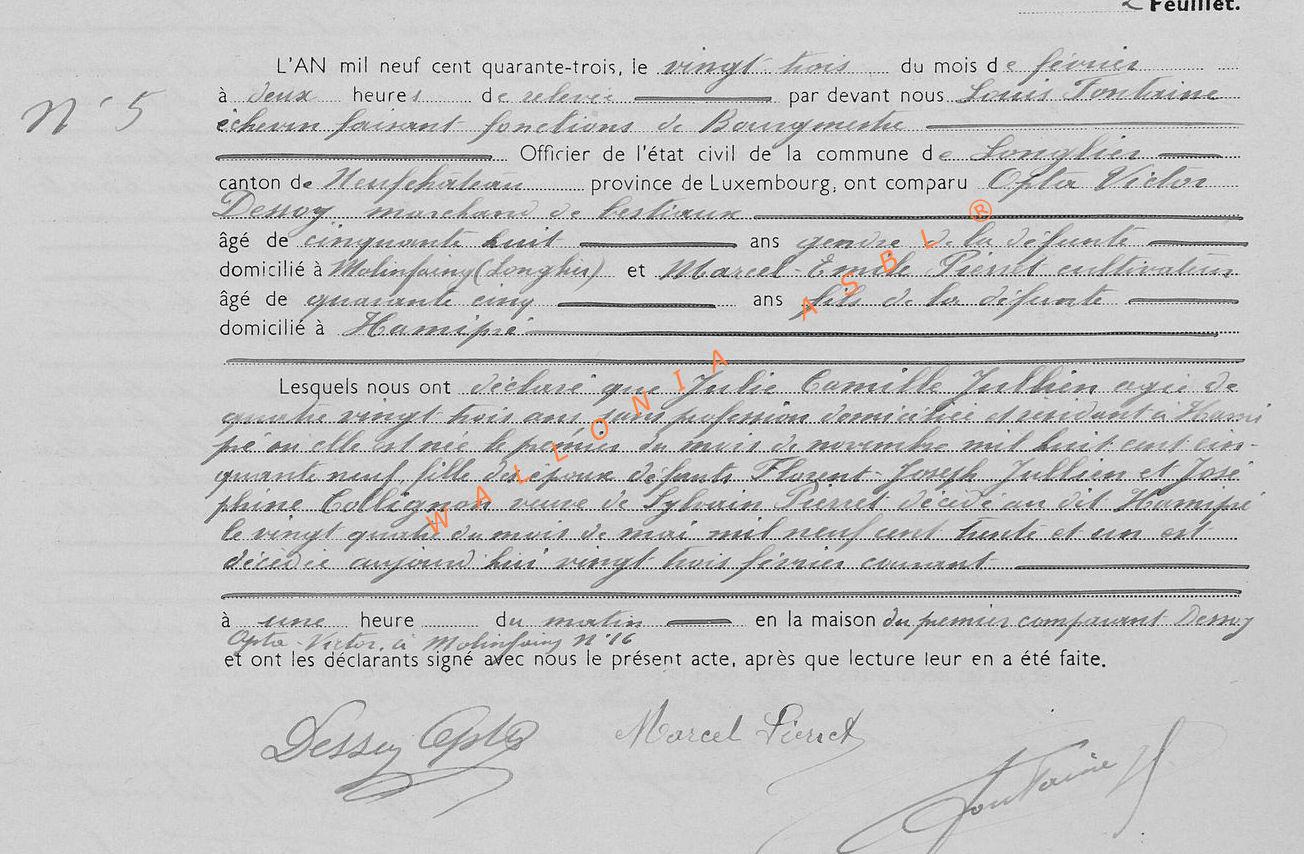 2 Feuillet.
L'AN mil neuf cent quarante-trois, le vingt trois du mois de février
N° 5
à deux heures de relevée par devant nous Louis Fontaine
échevin faisant fonctions de Bourgmestre
Officier de l'état civil de la commune de Longlier
canton de Neufchâteau province de Luxembourg, ont comparu Opta Victor
Dessoy, marchand de bestiaux
âgé de cinquante huit ans gendre de la défunte
domicilié à Molinfaing (Longlier) et Marcel-Emile Pierret cultivateur
âgé de quarante cinq ans fils de la défunte
domicilié à Hamipré
Lesquels nous ont déclaré que Julie Camille Jullien agée de
quatre vingt trois ans, sans profession domiciliée et résidant à Hami
pré où elle est née le premier du mois de novembre mil huit cent cin-
quante neuf, fille des époux défunts Florent-Joseph Jullien et José
phine Collignon veuve de Sylvain Pierret décédé au dit Hamipré
le vingt quatre du mois de mai mil neuf cent trente et un est
décédée aujourd'hui vingt trois février courant
à une heure du matin en la maison du premier comparant Dessoy
Opta-Victor, à Molinfaing N°16
et ont les déclarants signé avec nous le présent acte, après que lecture leur en a été faite.
Dessoy Opta Marcel Pierret
Fontaine
WALLONIA ASBL ®